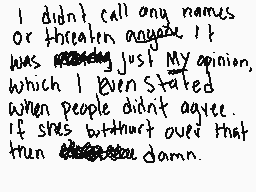 I didn't call any names
or threaten anyone it
was just MY opinion,
which I even stated
when people didn't agree.
if shes butthurt over that
then damn.